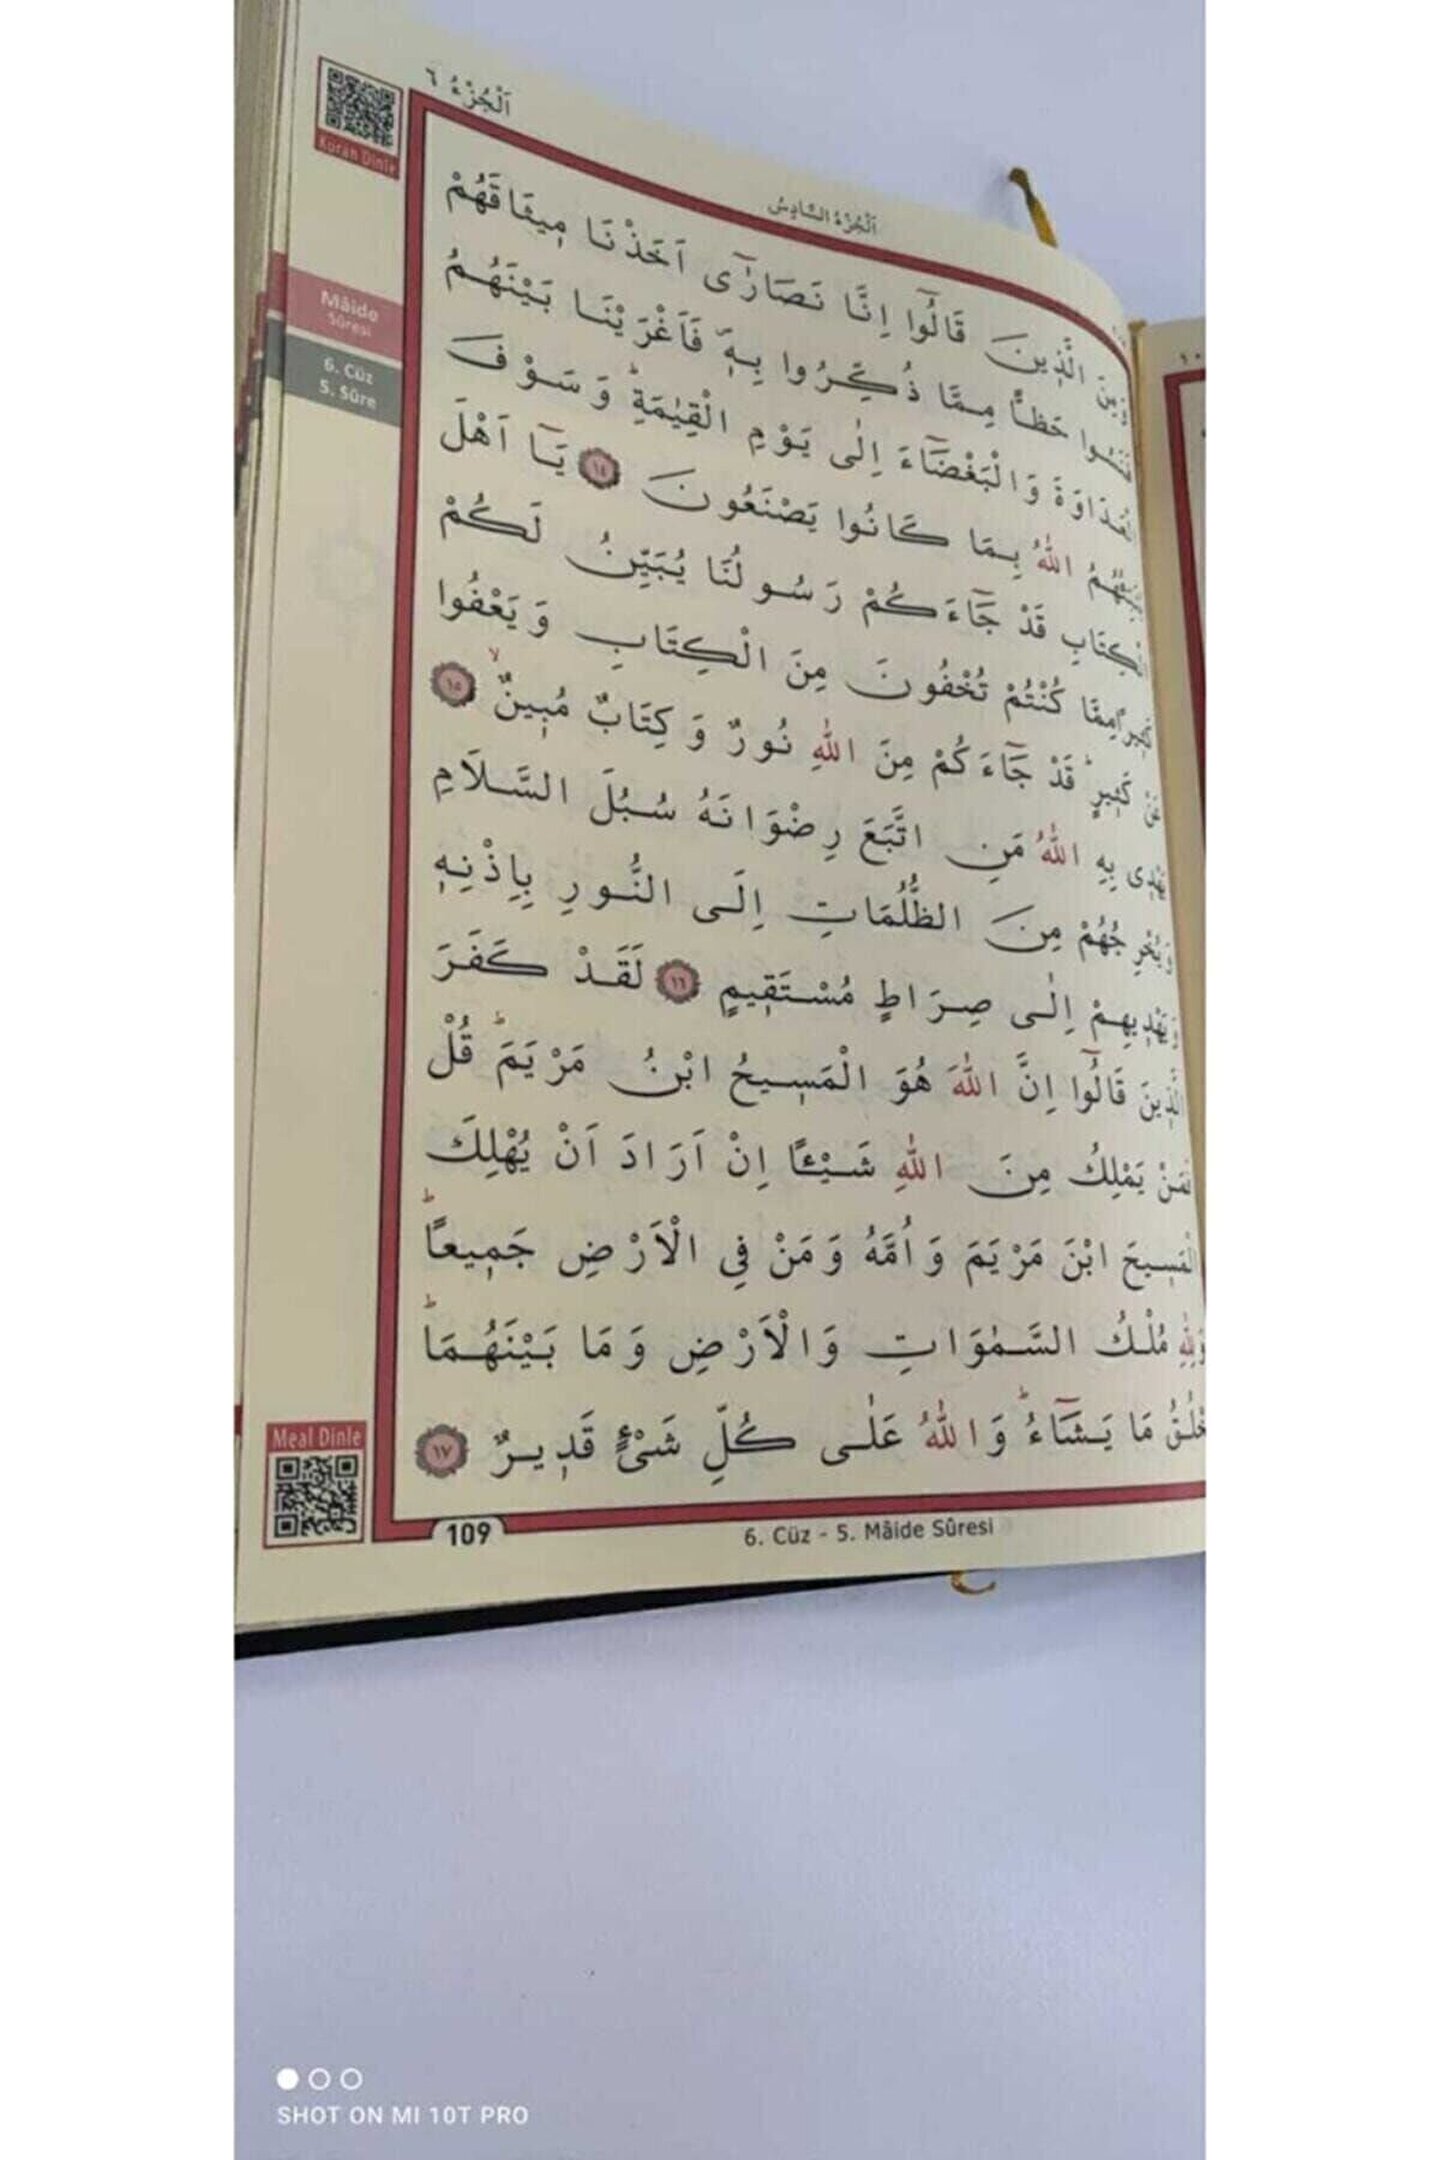 اَلْجُزْءُ ٦
Kuran Dinle
اَلْجُزْءُ السَّادِسُ
الَّذ۪ينَ قَالُٓوا اِنَّا نَصَارٰٓى اَخَذْنَا م۪يثَاقَهُمْ
حَظًّا مِمَّا ذُكِّرُوا بِه۪ۖ فَاَغْرَيْنَا بَيْنَهُمُ
وَالْبَغْضَٓاءَ اِلٰى يَوْمِ الْقِيٰمَةِۜ وَسَوْفَ
اللّٰهُ بِمَا كَانُوا يَصْنَعُونَ ١٤ يَٓا اَهْلَ
الْكِتَابِ قَدْ جَٓاءَكُمْ رَسُولُنَا يُبَيِّنُ لَكُمْ
مِمَّا كُنْتُمْ تُخْفُونَ مِنَ الْكِتَابِ وَيَعْفُوا
كَث۪يرٍۜ قَدْ جَٓاءَكُمْ مِنَ اللّٰهِ نُورٌ وَكِتَابٌ مُب۪ينٌۙ ١٥
يَهْد۪ى بِهِ اللّٰهُ مَنِ اتَّبَعَ رِضْوَانَهُ سُبُلَ السَّلَامِ
وَيُخْرِجُهُمْ مِنَ الظُّلُمَاتِ اِلَى النُّورِ بِاِذْنِه۪
وَيَهْد۪يهِمْ اِلٰى صِرَاطٍ مُسْتَق۪يمٍ ١٦ لَقَدْ كَفَرَ
الَّذ۪ينَ قَالُٓوا اِنَّ اللّٰهَ هُوَ الْمَس۪يحُ ابْنُ مَرْيَمَۜ قُلْ
فَمَنْ يَمْلِكُ مِنَ اللّٰهِ شَيْـًٔا اِنْ اَرَادَ اَنْ يُهْلِكَ
الْمَس۪يحَ ابْنَ مَرْيَمَ وَاُمَّهُ وَمَنْ فِي الْاَرْضِ جَم۪يعًاۜ
وَلِلّٰهِ مُلْكُ السَّمٰوَاتِ وَالْاَرْضِ وَمَا بَيْنَهُمَاۜ
يَخْلُقُ مَا يَشَٓاءُۜ وَاللّٰهُ عَلٰى كُلِّ شَيْءٍ قَد۪يرٌ ١٧
Mâide
Sûresi
6. Cüz
5. Sûre
Meal Dinle
109
6. Cüz - 5. Mâide Sûresi
SHOT ON MI 10T PRO